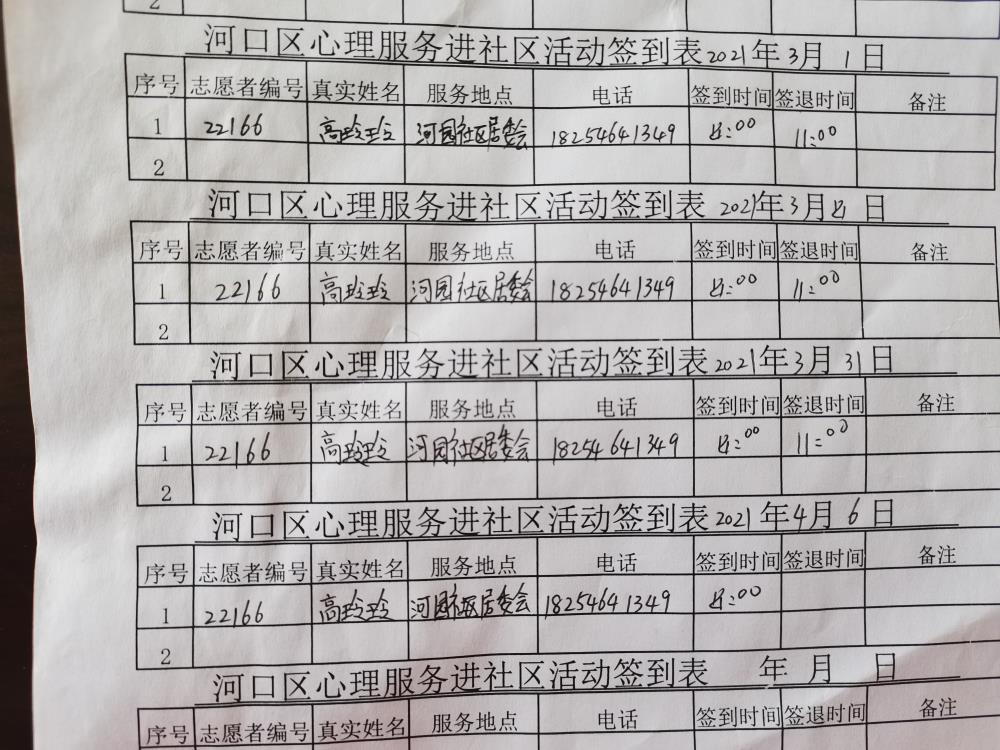 2
河口区心理服务进社区活动签到表2021年3月1日
序号 志愿者编号 真实姓名 服务地点 电话 签到时间 签退时间 备注
1 22166 高玲玲 河园社区居委会 18254641349 8:00 11:00
2
河口区心理服务进社区活动签到表2021年3月8日
序号 志愿者编号 真实姓名 服务地点 电话 签到时间 签退时间 备注
1 22166 高玲玲 河园社区居委会 18254641349 8:00 11:00
2
河口区心理服务进社区活动签到表2021年3月31日
序号 志愿者编号 真实姓名 服务地点 电话 签到时间 签退时间 备注
1 22166 高玲玲 河园社区居委会 18254641349 8:00 11:00
2
河口区心理服务进社区活动签到表2021年4月6日
序号 志愿者编号 真实姓名 服务地点 电话 签到时间 签退时间 备注
1 22166 高玲玲 河园社区居委会 18254641349 8:00
2
河口区心理服务进社区活动签到表 年 月 日
序号 志愿者编号 真实姓名 服务地点 电话 签到时间 签退时间 备注